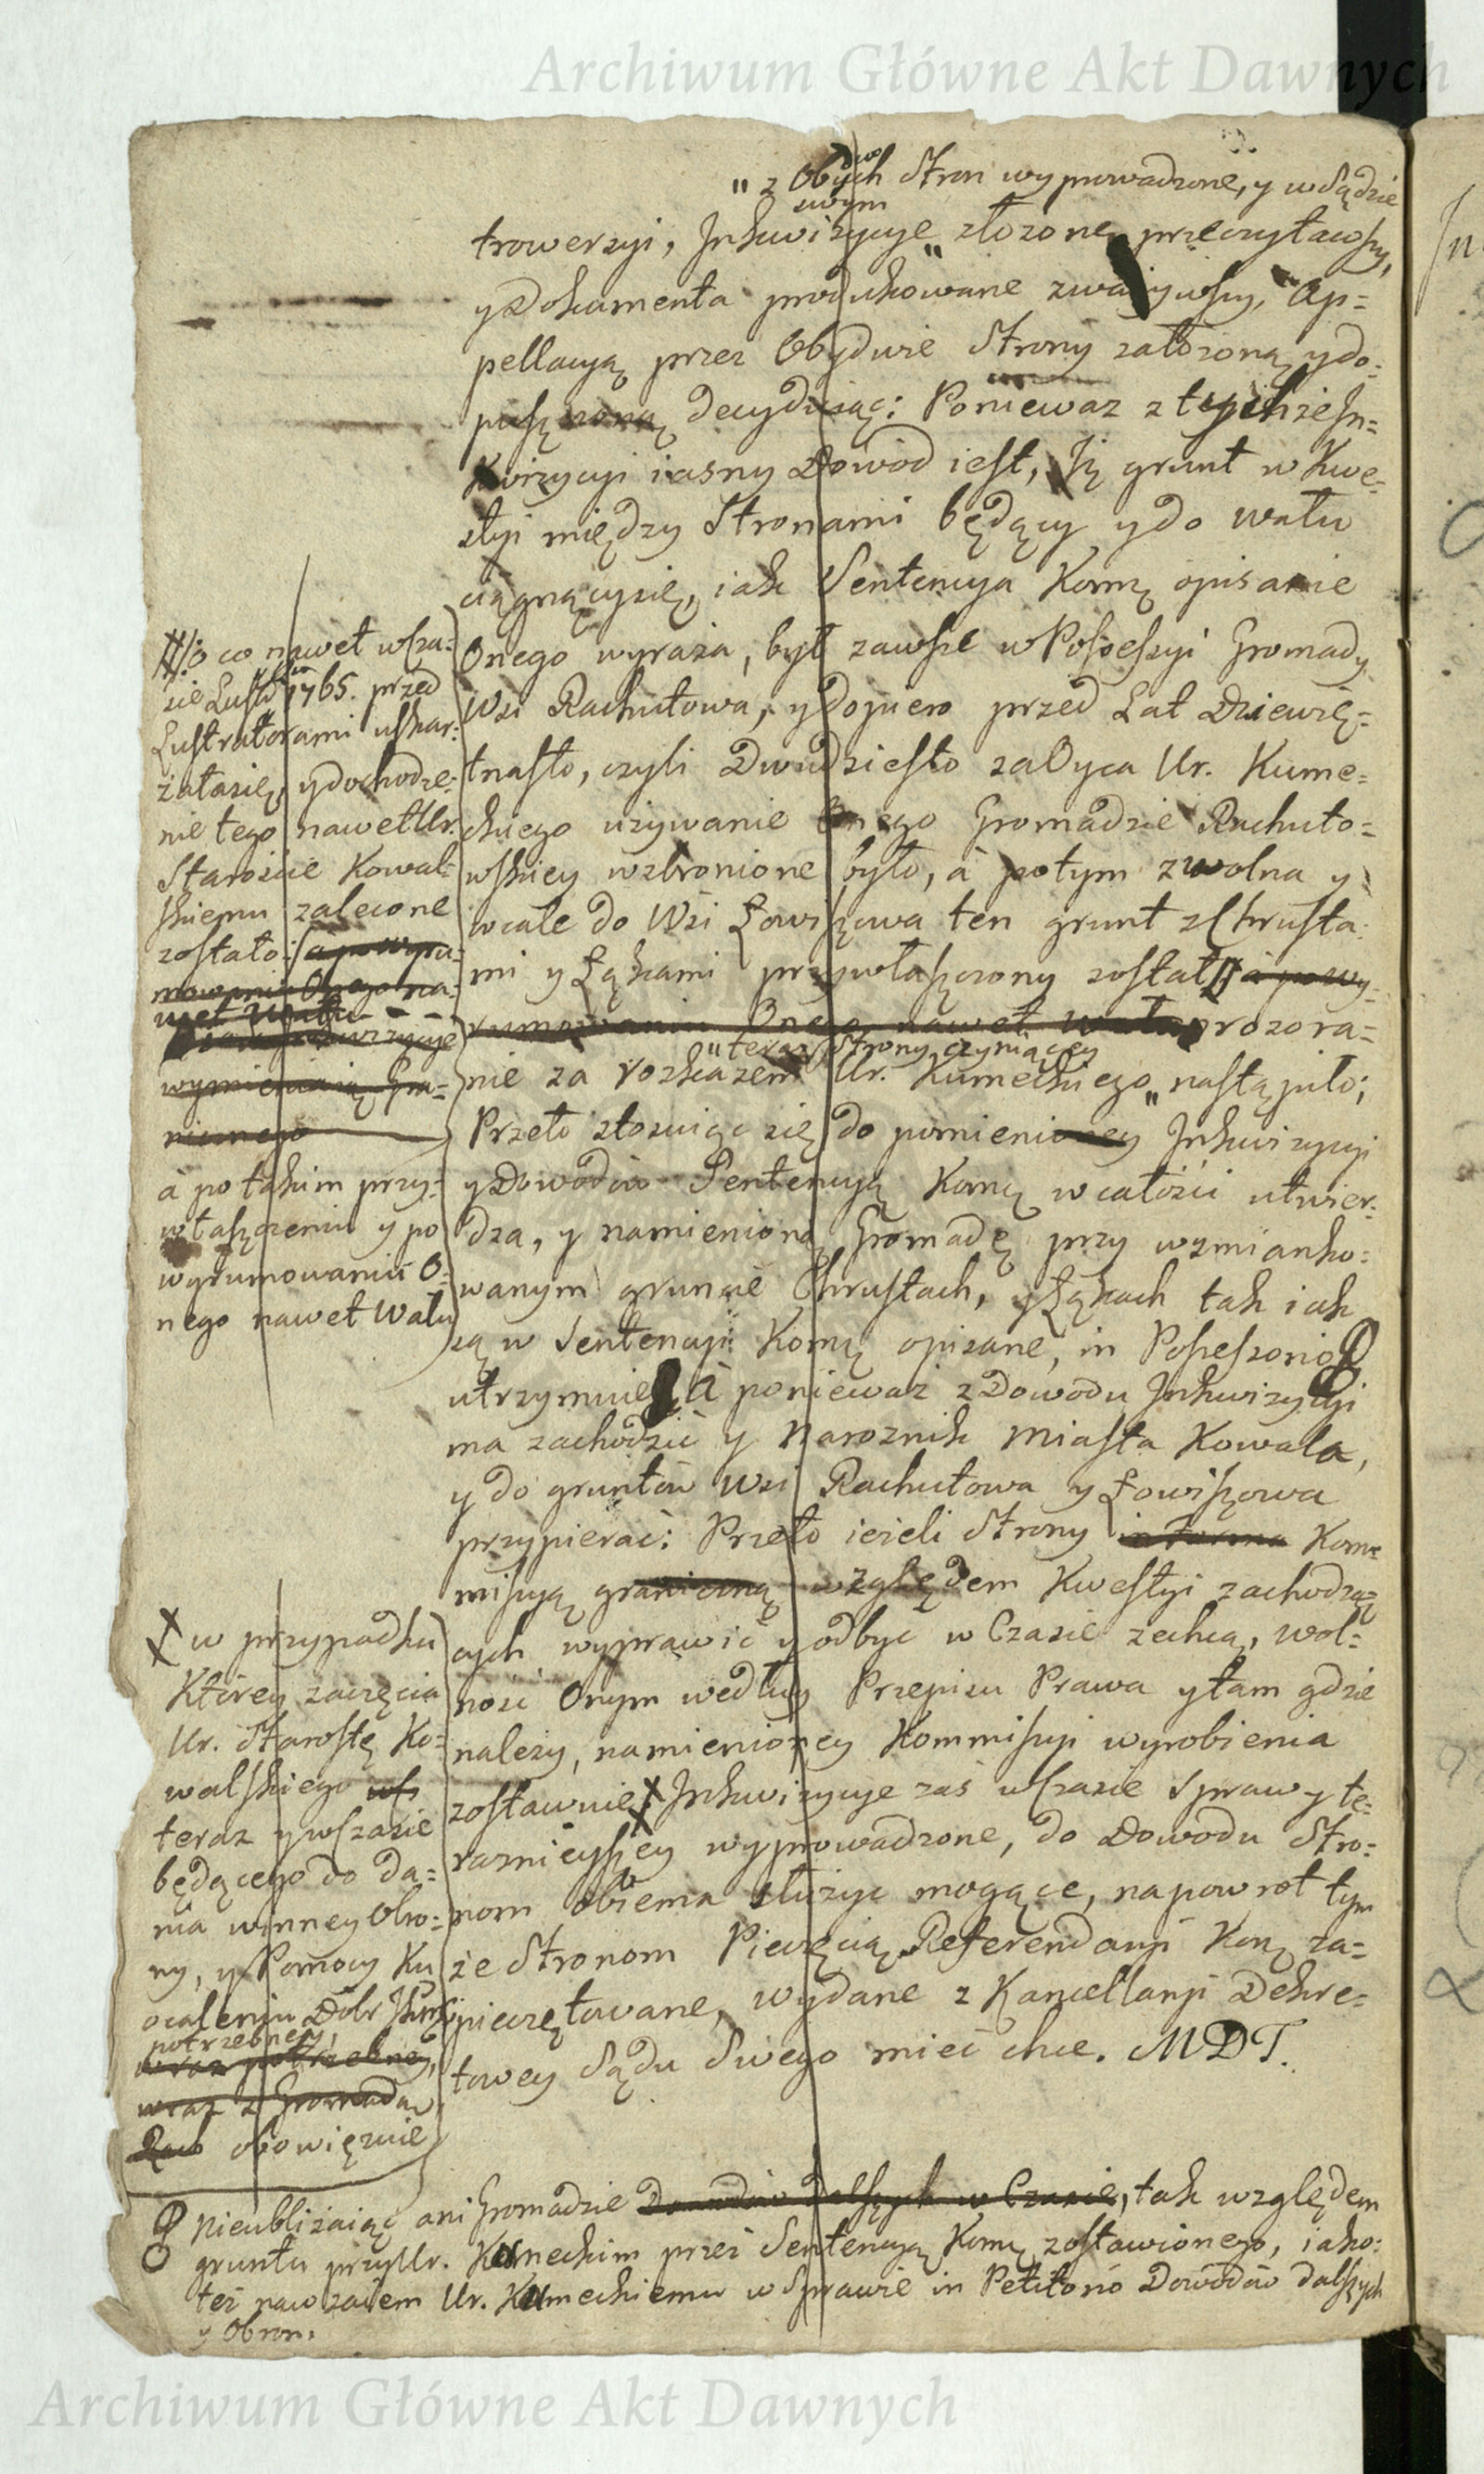 Archiwum Główne Akt Dawnych
" z Obydwoch Stron wyprowadzone, y w Sądzie
swym
trowersyi, Inkwizycye " złozone przeczytawszy,
y Dokumenta produkowane zwazywszy, Ap=
pellacyą przez Obydwie Strony załozoną y do=
pusczoną decyduiąc: Poniewaz z tychze In=
kwizycyi iasny Dowod iest, Iz grunt w Kwe=
styi między Stronami będący y do wału
ciągnący się, iak Sentencya Komą opisanie
Onego wyraza, był zawsze w Possessyi Gromady
Wsi Rachutowa, y dopiero przed Lat Dziewię=
tnasto, czyli Dwudziesto za Oyca Ur. Kume=
ckiego uzywanie Onego Gromadzie Rachuto=
wskiey wzbronione było, à potym zwolna y
wcale do Wsi Łowiczowa ten grunt z Chrusta=
mi y Łąkami przywłasczony został # à po wy=
rumowaniu Onego nawet wału rozora=
" teraz Strony czyniącey
nie za rozkazem Ur. Kumeckiego " nastąpiło;
Przeto stosuiąc się do pomienioney Inkwizycyi
y Dowodow Sentencyą Komą w całości utwier=
dza, y namienioną Gromadę przy wzmianko=
wanym gruncie Chrustach, y Łąkach tak iak
są w Sentencyi Komą opisane, in Possessorio
utrzymuie, A poniewaz z Dowodu Inkwizycyi
ma zachodzić y Naroznik Miasta Kowala,
y do gruntow Wsi Rachutowa y Łowiczowa
przypierać: Przeto iezeli Strony Kom=
missyą graniczną względem Kwestyi zachodzą=
cych wyprawić y odbyc w Czasie zechcą, wol=
nosc Onym według Przepisu Prawa y tam gdzie
nalezy, namienioney Kommissyi wyrobienia
zostawuie, X Inkwizycye zas w Czasie Sprawy te=
raznieyszey wyprowadzone, do Dowodu Stro=
nom obiema słuzyc mogące, na powrot tym
ze Stronom Pieczęcią Referendaryi Koną za=
pieczętowane, wydane z Kancellaryi Dekre=
towey Sądu Swego mieć chce. MDT.
#/ o co nawet w Cza=
sie Lustr: 1765. przed
Lustratorami uskar=
zała się, y dochodze=
nie tego nawet Ur.
Staroscie Kowal=
skiemu zalecone
zostało: a po wyru=
mowaniu Onego na=
wet Wału
wymieniaią Gra=
nicznego
à po takim przy=
własczeniu y po
wyrumowaniu O=
nego nawet Wału
X w przypadku
Ktorey zaczęcia
Ur. Starostę Ko=
walskiego
teraz y w Czasie
będącego do da=
nia winney Obro=
ny, y Pomocy Ku
ocaleniu Dobr
potrzebney,
wraz potrzebney,
wraz z Gromadą
Rach obowięzuie
nieubliżaiąc ani Gromadzie Dowodow dalszych w Czasie, tak względem
gruntu przy Ur. Kumeckim przez Sentencyą Komą zostawionego, iako=
tez nawzaiem Ur. Kumeckiemu w Sprawie in Petitorio Dowodow dalszych
y Obron.
Archiwum Główne Akt Dawnych